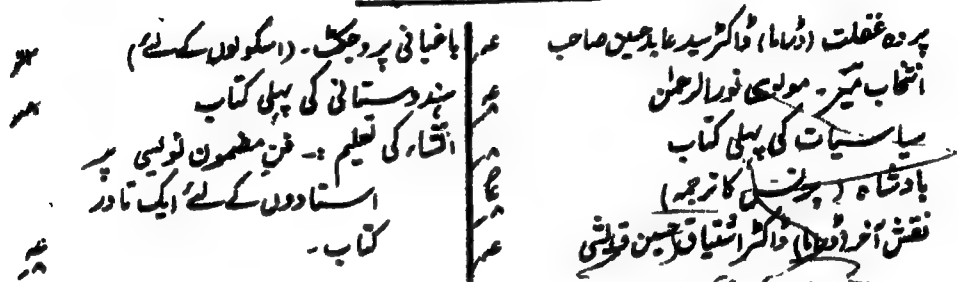 پردہ غفلت (ڈراما) ڈاکٹر سید عابد حسین صاحب
انتخاب میر۔ مولوی نورالرحمٰن
سیاسیات کی پہلی کتاب
بادشاہ (پرنس کا ترجمہ)
نقش آخر (ڈراما) ڈاکٹر اشتیاق حسین قریشی
باغبانی پروجکٹ۔ (اسکولوں کے لئے)
ہندوستانی کی پہلی کتاب
انشاء کی تعلیم :۔ فن مضمون نویسی پر
استادوں کے لئے ایک نادر
کتاب۔